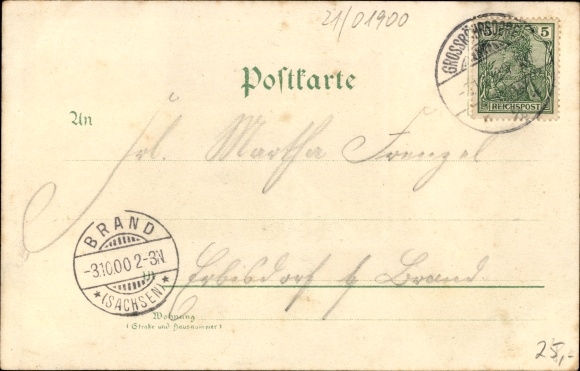 21/01900
GROSSRÖHRSDORF
5
REICHSPOST
Postkarte
An
Frl. Martha Frenzel
BRAND
-3.10.00 2-3N.
*(SACHSEN)*
in
Erbisdorf b Brand
Wohnung
(Straße und Hausnummer)
25,-